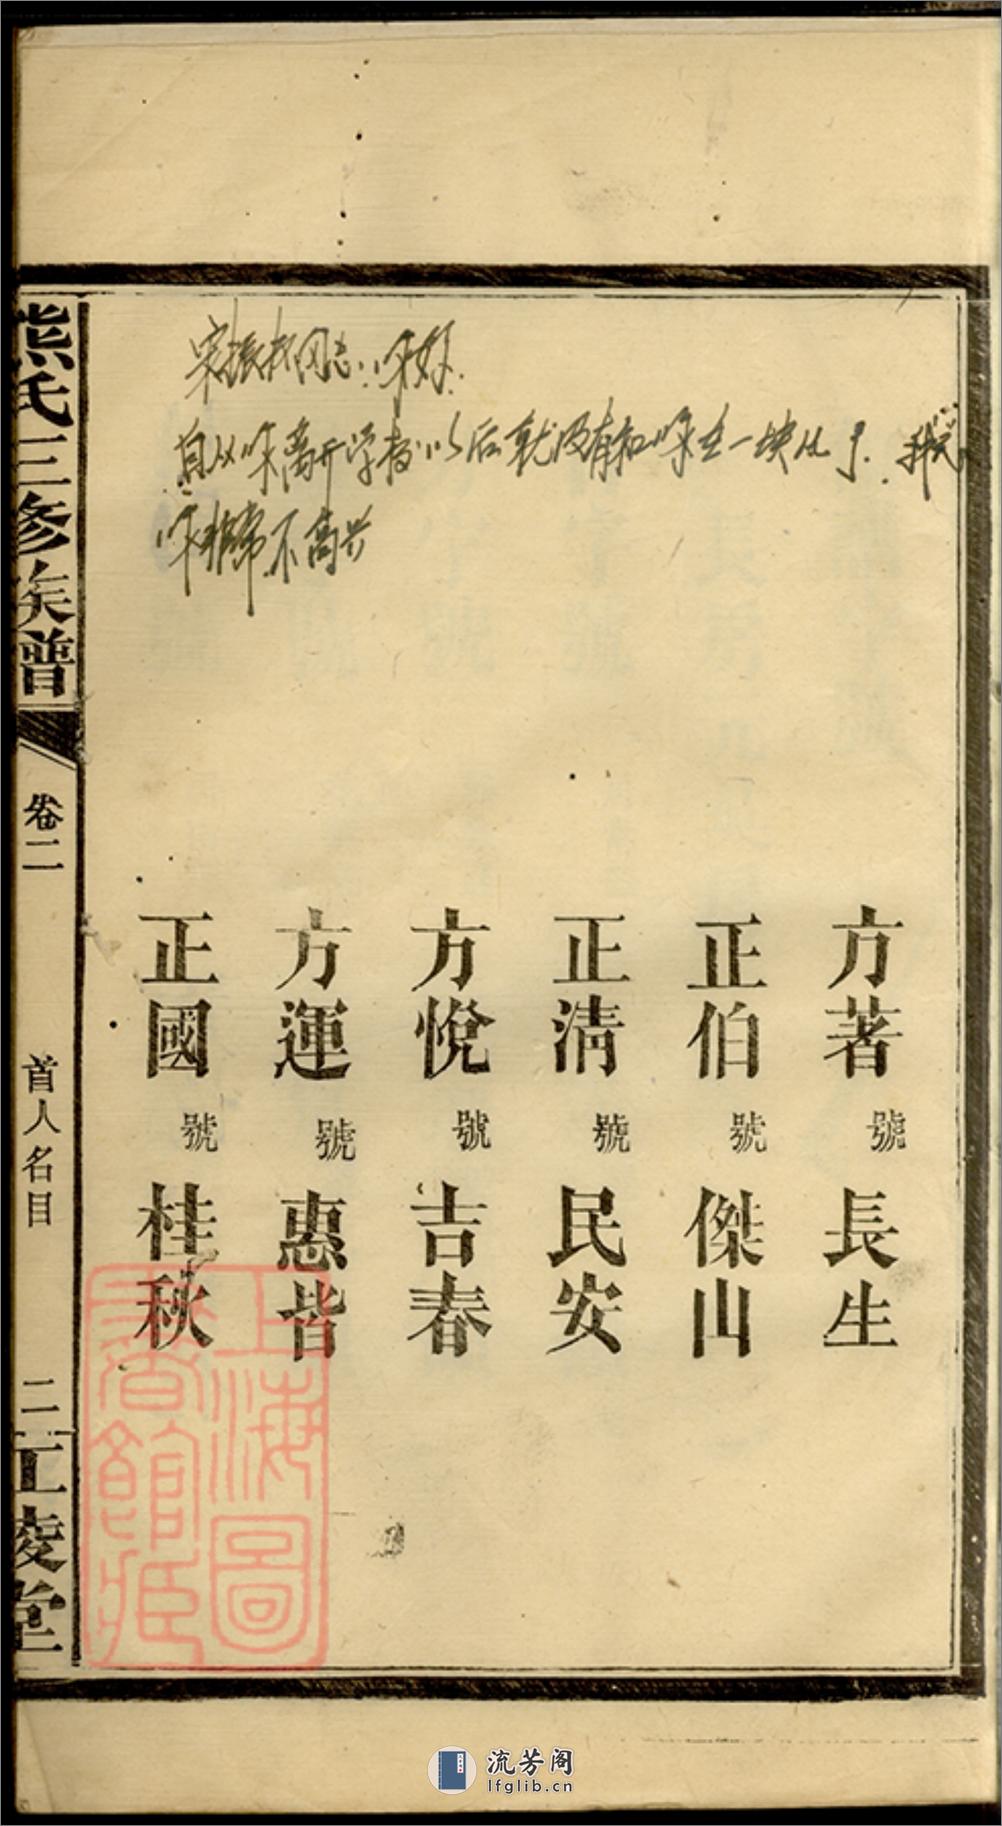 自从你离开学校以后就没有和你在一块儿了. 我
你非常不高兴
方著 號 長生
正伯 號 傑山
正清 號 民安
方悅 號 吉春
方運 號 惠皆
正國 號 桂秋
熊氏三修族譜
卷二
首人名目
二
江陵堂
上海圖
書館藏
流芳阁
lfglib.cn